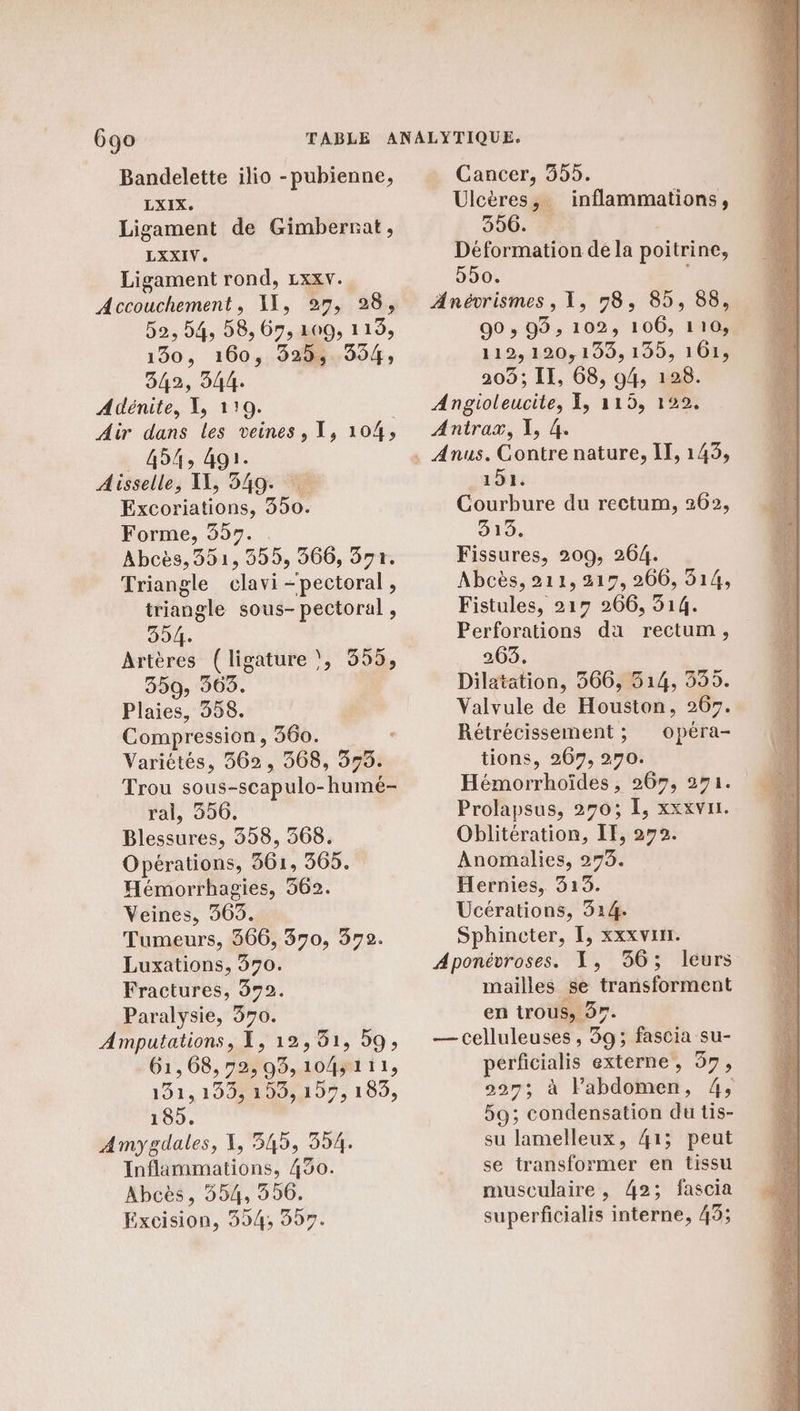 690 TABLE ANALYTIQUE.
Bandelette ilio-pubienne,
LXIX.
Ligament de Gimbernat,
LXXIV.
Ligament rond, LXXV.
Accouchement, II, 27, 28,
52, 54, 58, 67, 109, 113,
130, 160, 325, 334,
342, 344.
Adénite, I, 119.
Air dans les veines, I, 104,
454, 491.
Aisselle, II, 349.
Excoriations, 350.
Forme, 357.
Abcès, 351, 355, 366, 371.
Triangle clavi-pectoral,
triangle sous-pectoral,
354.
Artères (ligature), 355,
359, 363.
Plaies, 358.
Compression, 360.
Variétés, 362, 368, 373.
Trou sous-scapulo-humé-
ral, 356.
Blessures, 358, 368.
Opérations, 361, 365.
Hémorrhagies, 362.
Veines, 363.
Tumeurs, 366, 370, 372.
Luxations, 370.
Fractures, 372.
Paralysie, 370.
Amputations, I, 12, 31, 59,
61, 68, 72, 93, 104, 111,
131, 133, 153, 157, 183,
185.
Amygdales, I, 345, 354.
Inflammations, 430.
Abcès, 354, 356.
Excision, 354, 357.
Cancer, 355.
Ulcères, inflammations,
356.
Déformation de la poitrine,
550.
Anévrismes, I, 78, 85, 88,
90, 93, 102, 106, 110,
112, 120, 133, 135, 161,
203; II, 68, 94, 128.
Angioleucite, I, 115, 122.
Antrax, I, 4.
Anus. Contre nature, II, 143,
151.
Courbure du rectum, 262,
313.
Fissures, 209, 264.
Abcès, 211, 217, 266, 314,
Fistules, 217 266, 314.
Perforations du rectum,
263.
Dilatation, 366, 314, 335.
Valvule de Houston, 267.
Rétrécissement; opéra-
tions, 267, 270.
Hémorrhoïdes, 267, 271.
Prolapsus, 270; I, XXXVII.
Oblitération, II, 272.
Anomalies, 273.
Hernies, 313.
Ucérations, 314.
Sphincter, I, XXXVIII.
Aponévroses. I, 36; leurs
mailles se transforment
en trous, 37.
— celluleuses, 39; fascia su-
perficialis externe, 37,
227; à l'abdomen, 4,
59; condensation du tis-
su lamelleux, 41; peut
se transformer en tissu
musculaire, 42; fascia
superficialis interne, 43;